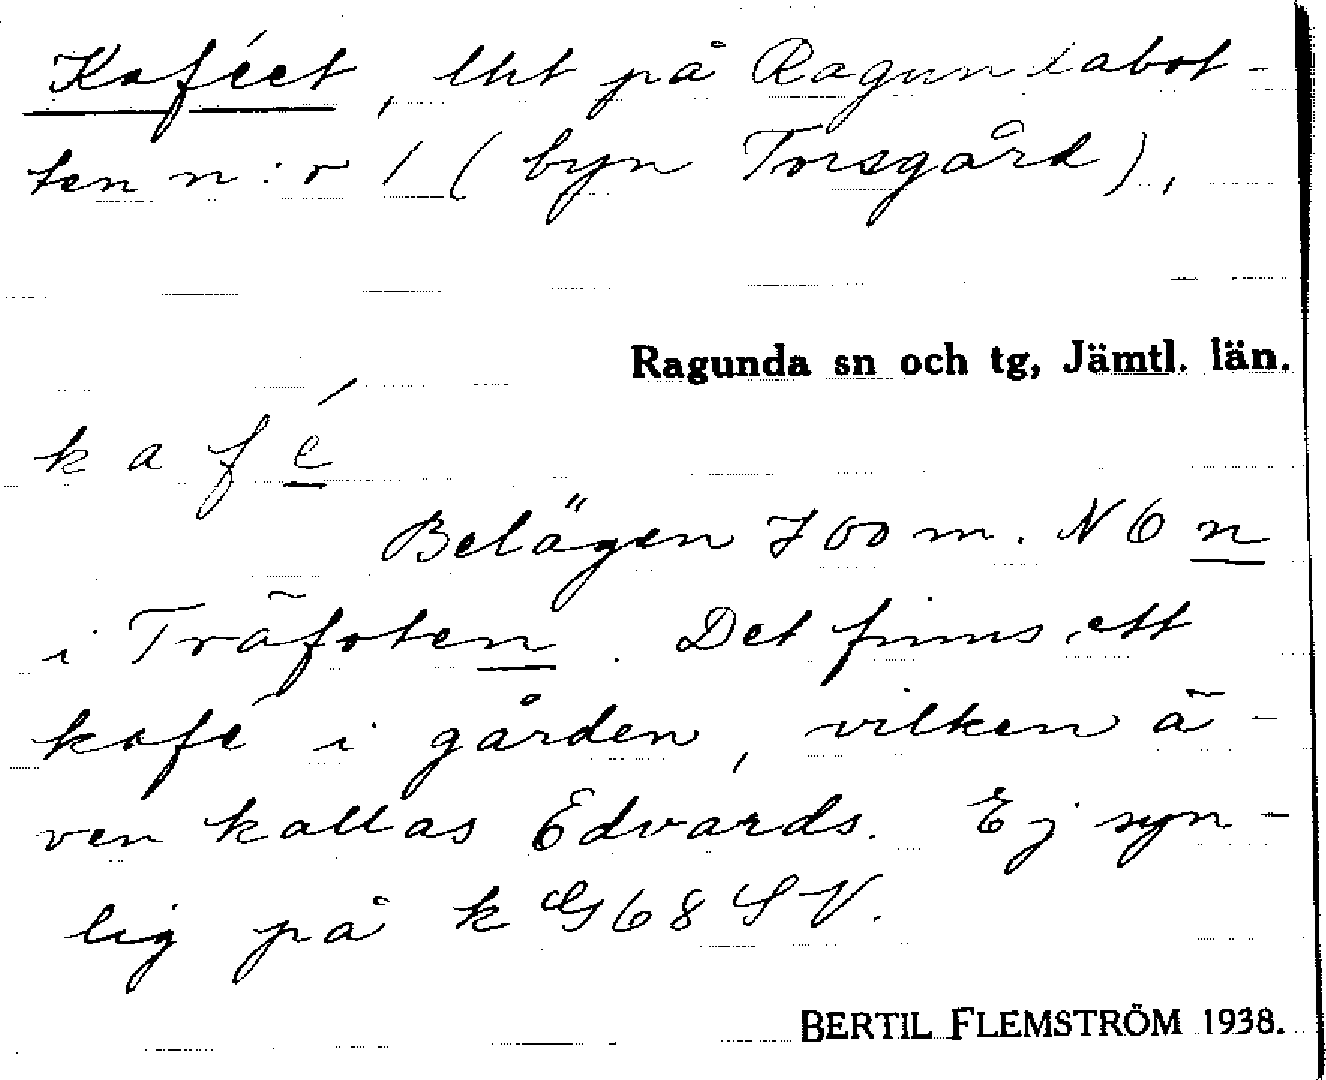 Kaféet, lht på Ragundabot-
ten n:r 1 (byn Torsgård),
Ragunda sn och tg, Jämtl. län.
k a f é
Belägen 700 m. N 6 n
i Träfoten. Det finns ett
kafé i gården, vilken ä-
ven kallas Edvards. Ej syn-
lig på k G68SV.
BERTIL FLEMSTRÖM 1938.